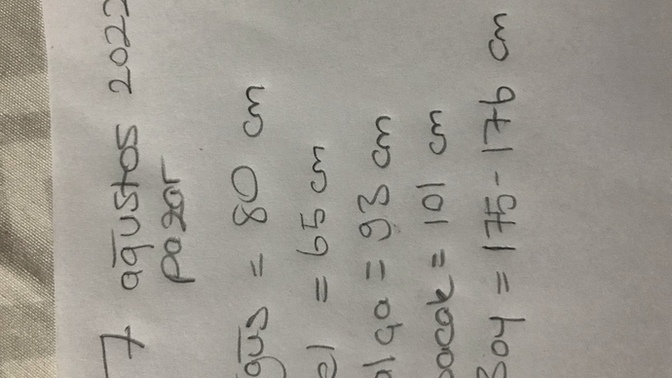 7 ağustos 2022
pazar
ğüs = 80 cm
el = 65 cm
alça = 93 cm
bacak = 101 cm
Boy = 175-176 cm